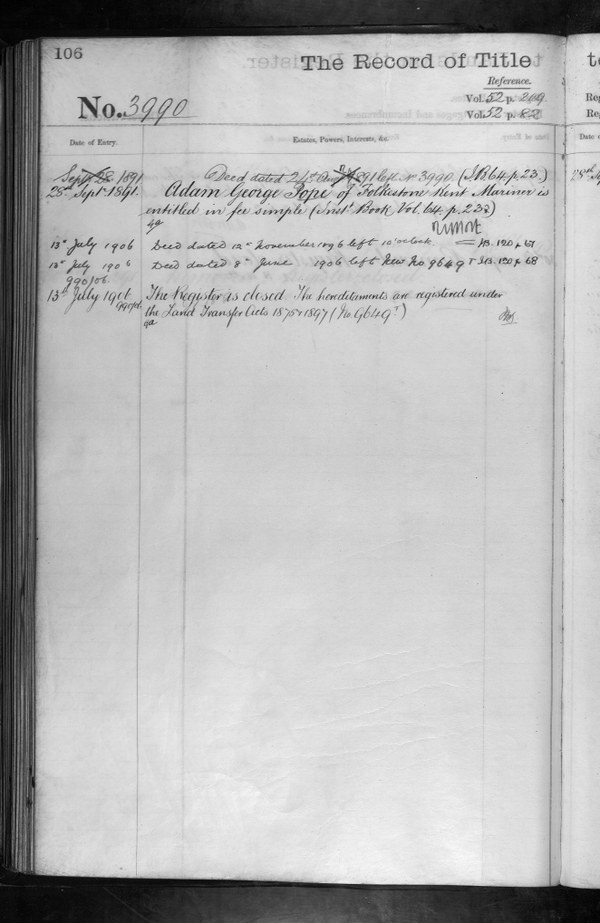 106
The Record of Title
Reference.
Vol. 52 p. 219
No. 3990
Vol. 52 p. 82
Date of Entry.
Estates, Powers, Interests, &c.
Sept 28 1891
Deed dated 24th Aug 1891 left No 3990 (I.B. 64. p. 23.)
28th Septr 1891.
Adam George Pope of Folkestone Kent Mariner is
entitled in fee simple (Inst. Book Vol. 64. p. 23.)
13th July 1906
Deed dated 12th November 1896 left 10 o'clock I.B. 120 p 67
13th July 1906
Deed dated 8th June 1906 left New No 9649 I.B. 120 p 68
990/06.
13th July 1906
The Register is closed. The hereditaments are registered under
990/06
the Land Transfer Acts 1875 & 1897 (No 9649)